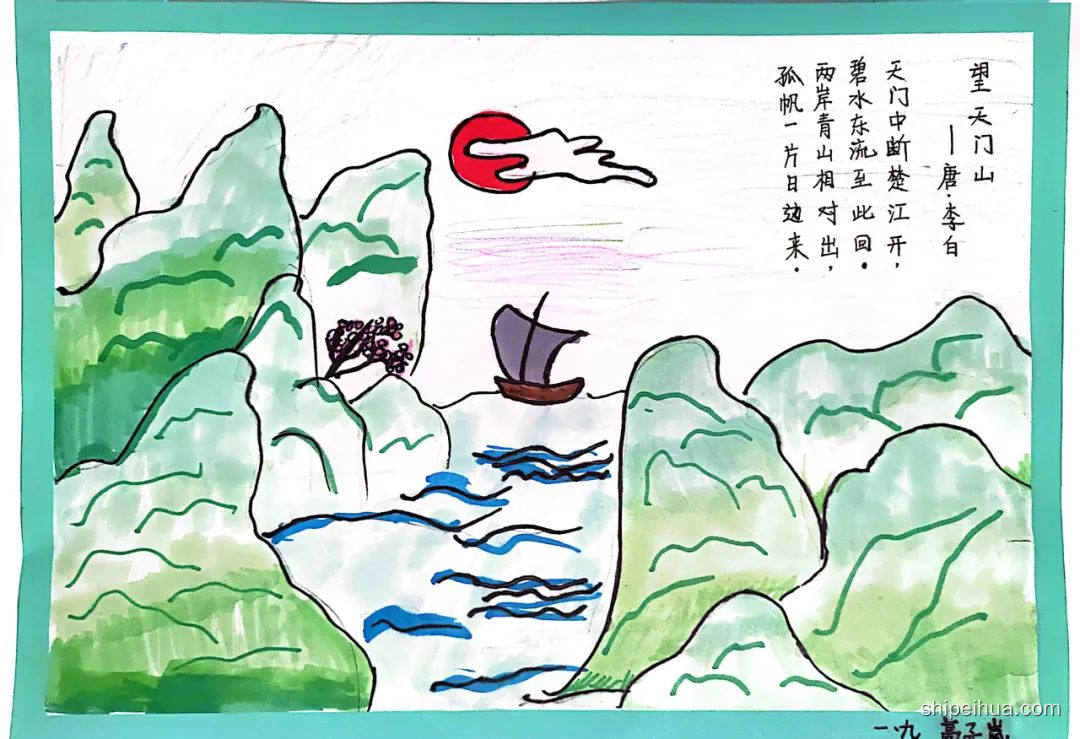 望天门山
——唐·李白
天门中断楚江开，
碧水东流至此回。
两岸青山相对出，
孤帆一片日边来.
shipeihua.com
一九 高子岚